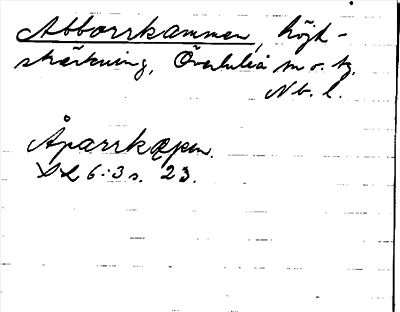 Abborrkammen, höjd-
sträckning, Överluleå sn o. tg.
Nb. l.
Åparrkæpen.
SL 6:3 s. 23.